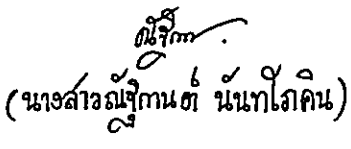 ณัฐิกา
(นางสาวณัฐิกานต์ นันทโภคิน)